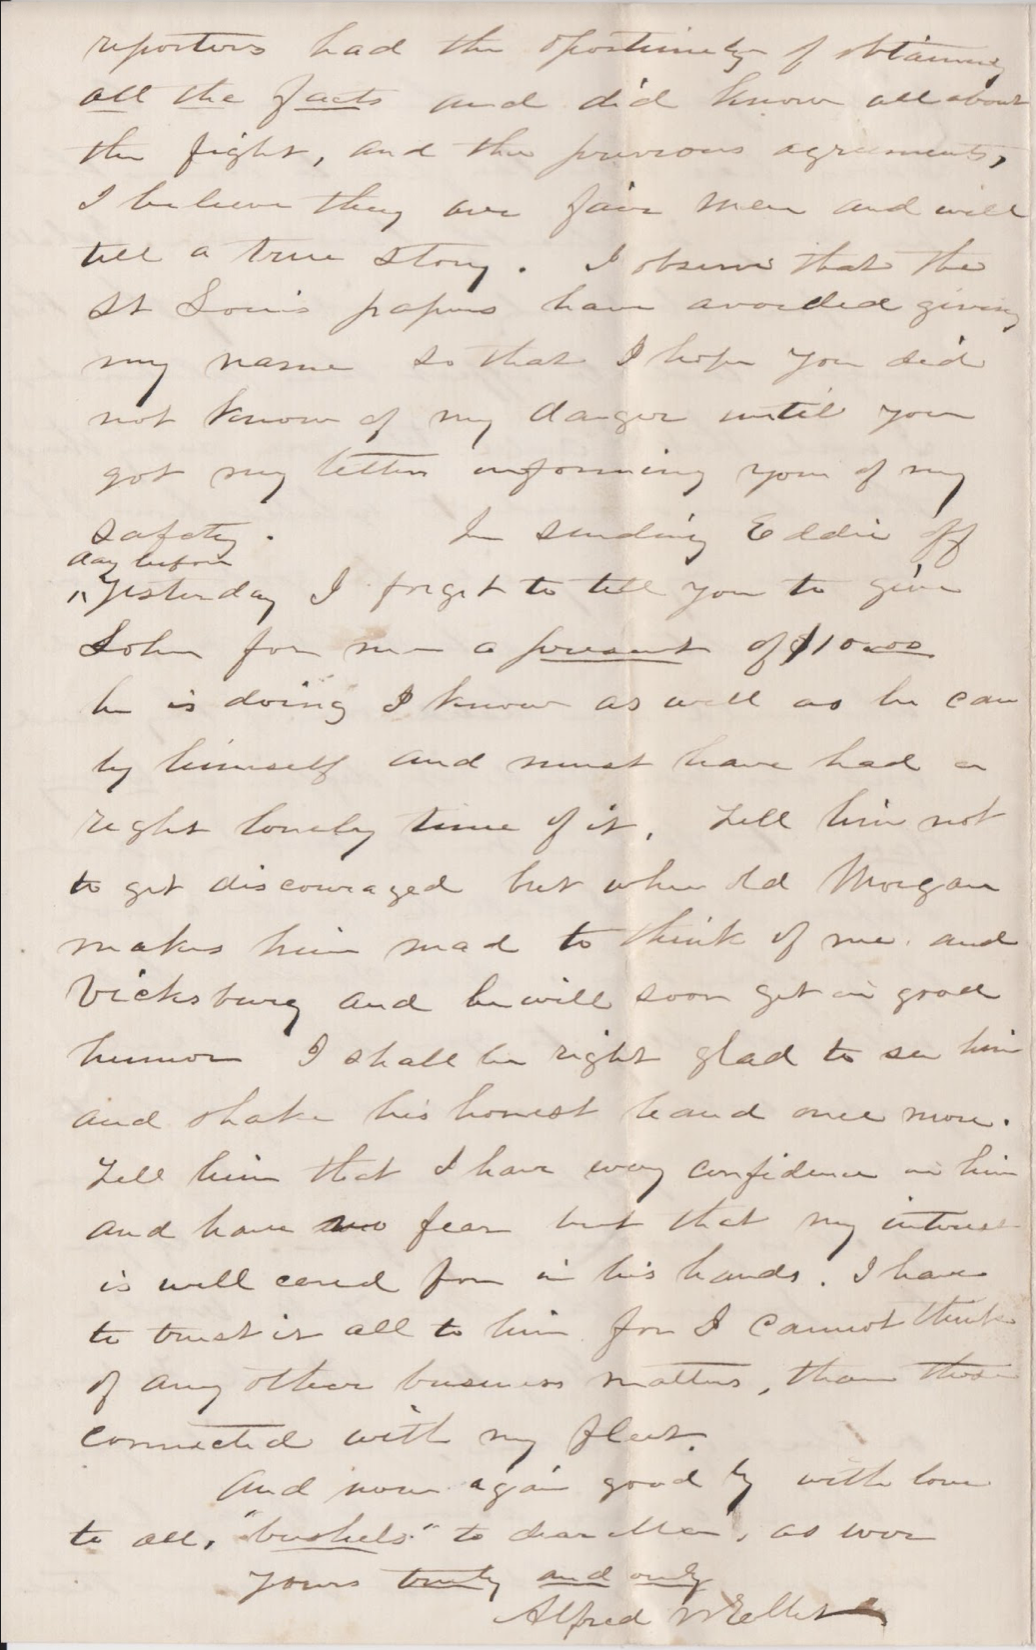 reporters had the oportunity of obtaining
all the facts and did know all about
the fight, and the previous agreements,
I believe they are fair men and will
tell a true story. I observe that the
St Louis papers have avoided giving
my name so that I hope you did
not know of my danger until you
got my letter informing you of my
safety. In sending Eddie off
day before
yesterday I forgot to tell you to give
John for me a present of $10.00
he is doing I know as well as he can
by himself and must have had a
right lonely time of it. Tell him not
to get discouraged but when old Morgan
makes him mad to think of me and
Vicksburg and he will soon get in good
humor I shall be right glad to see him
and shake his honest hand once more.
Tell him that I have every confidence in him
and have no fear but that my interest
is well cared for in his hands. I have
to trust it all to him for I cannot think
of any other business matters, than those
connected with my fleet.
And now again good by with love
to all, "bushels" to dear , as ever
Yours truly and only
Alfred W Ellet